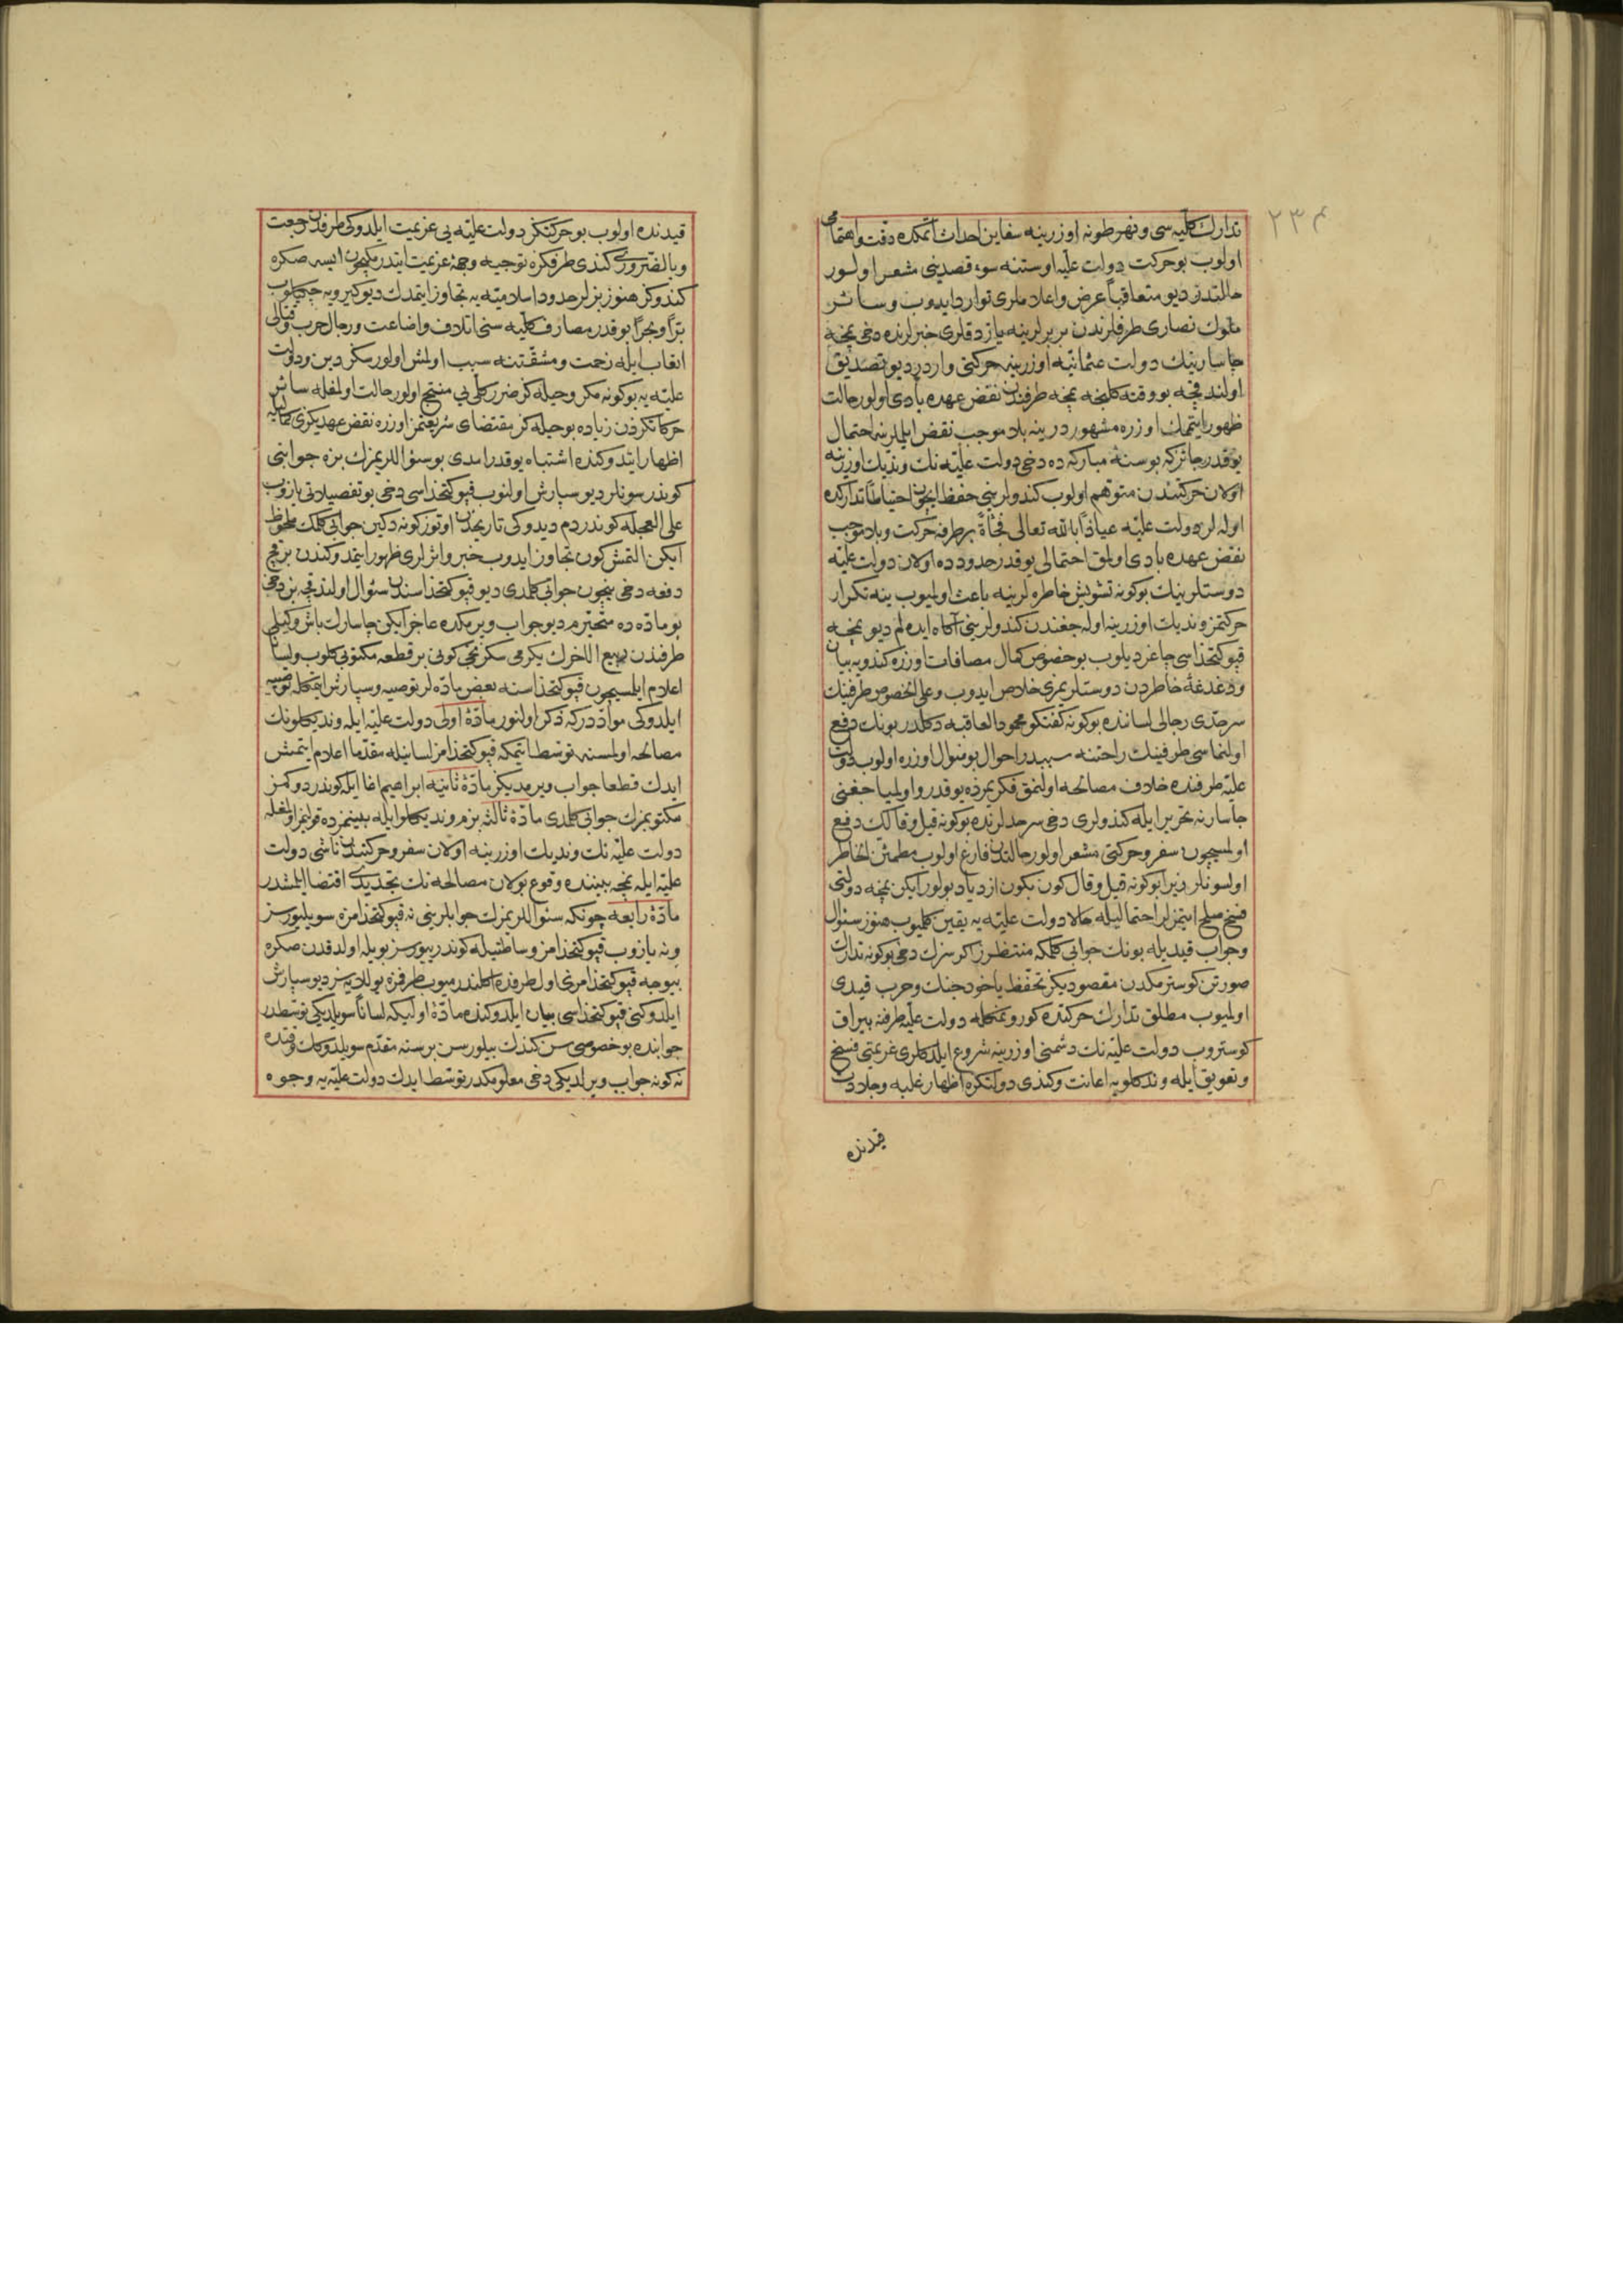 ٢٣٤
تدارك كلیه سی و نهر طونه اوزرینه سفاین احداث اتمكده دقت و اهتمامی
اولوب بو حركت دولت علیّه اوستنه سوء قصدینی مشعر اولور
حالتدر دیو متعاقباً عرض و اعلاملری توارد ایدوب و سائر
ملوك نصاری طرفلرندن بربرلرینه یازدقلری خبرلرنده دخی نمچه
چاسارینك دولت عثمانیّه اوزرینه حركتی واردر دیو تصدیق
اولندقجه بو وقته كلنجه نمچه طرفندن نقض عهده بادی اولور حالت
ظهور ایتمامك اوزره مشهور در ینه بلا موجب نقض ایلملرینه احتمال
یوقدر جائزكه بو سنۀ مباركه ده دخی دولت علیّه نك وندیك اوزرینه
اولان حركتندن متوهم اولوب كندولرینی حفظ ایچون احتیاطاً تداركده
اوله لر دولت علیّه عیاذاً بالله تعالی فجأةً بر طرفه حركت و بلا موجب
نقض عهده بادی اولمق احتمالی یوقدر حدودده اولان دولت علیّه
دوستلرینك بو كونه تشویش خاطره لرینه باعث اولمیوب ینه تكرار
حركتمز وندیك اوزرینه اوله جغندن كندولرینی آكاه ایده لم دیو نمچه
قپو كتخداسی چاغردیلوب بو خصوص كمال مصافات اوزره كندویه بیان
و دغدغۀ خاطردن دوستلریمزی خلاص ایدوب و علی الخصوص طرفینك
سرحدی رجالی لساننده بو كونه كفتكو محمود العاقبه دكلدر بونك دفع
اولنماسی طرفینك راحتنه سببدر احوال بو منوال اوزره اولوب دولت
علیّه طرفنده خلاف مصالحه اولنمق فكریمزده یوقدر و اولمیاجغنی
چاسارنه تحریر ایله كندولری دخی سرحدلرنده بو كونه قیل و قالك دفع
اولمسیچون سفر و حركتی مشعر اولور حالتدن فارغ اولوب مطمئن الخاطر
اولسونلر زیرا بو كونه قیل و قال كون بكون ازدیاد بولور ایكن نمچه دولتی
فسخ صلح ایتمزلر احتمالیله حالا دولت علیّه یه یقین كلمیوب هنوز سئوال
و جواب قیدیله بونك جوابی كلمكه منتظرز اكر سزك دخی بو كونه تدارك
صورتن كوسترمكدن مقصودیكز تحفظ یاخود جنك و حرب قیدی
اولمیوب مطلق تدارك حركتده كورونمكله دولت علیّه طرفنه یراق
كوستروب دولت علیّه نك دشمنی اوزرینه شروع ایلدكلری عزیمتی فسخ
و تعویق ایله وندكلویه اعانت و كندی دولتكزه اظهار غلبه و جلادت
قیدنده
قیدنده اولوب بو حركتكز دولت علیّه یی عزیمت ایلدوكی طرفدن رجعت
و بالضروری كندی طرفكزه توجیه وجهۀ عزیمت ایتدرمكچون ایسه صكره
كندوكز هنوز بزلر حدود اسلامیّه یه تجاوز ایتمدك دیو كیرویه چكیلوب
برّاً و بحراً بو قدر مصارف كلیه سنی اتلاف و اضاعت و رجال حرب و قتالی
اتعاب ایله زحمت و مشقّتنه سبب اولمش اولورسكز دین و دولت
علیّه یه بو كونه مكر و حیله كز ضرر كلی یی منتج اولور حالت اولمغله سائر
حركاتكزدن زیاده بو حیله كز مقتضای شریعتمز اوزره نقض عهدیكزی
اظهار ایتدوكنده اشتباه یوقدر امدی بو سئواللریمزك بزه جوابنی
كوندرسونلر دیو سپارش اولنوب قپو كتخداسی دخی بو تفصیلاتی یازوب
علی العجله كوندردم دیدوكی تاریخدن اوتوز كونه دكین جوابی كلمك ملحوظ
ایكن التمش كون تجاوز ایدوب خبر و اثرلری ظهور ایتمدوكندن بر قچ
دفعه دخی نیچون جوابی كلمدی دیو قپو كتخداسندن سئوال اولندقجه بن دخی
بو مادّه ده متحیّرم دیو جواب ویرمكده عاجز ایكن چاسارك باش وكیلی
طرفندن ربیع الاخرك یكرمی سكزنجی كونی بر قطعه مكتوبی كلوب و لساناً
اعلام ایلمسیچون قپو كتخداسنه بعض مادّه لر توصیه و سپارش ایتمكله توصیه
ایلدوكی موادّدركه ذكر اولنور مادّۀ اولی دولت علیّه ایله وندیكلونك
مصالحه اولمسنه توسّط ایتمكه قپو كتخدامز لسانیله مقدّما اعلام ایتمش
ایدك قطعا جواب ویرمدیكز مادّۀ ثانیه ابراهیم اغا ایله كوندردوكمز
مكتوبمزك جوابی كلمدی مادّۀ ثالثه بزم وندیكلو ایله بینمزده قولمز اولمغله
دولت علیّه نك وندیك اوزرینه اولان سفر و حركتندن ناشی دولت
علیّه ایله نمچه بیننده وقوع بولان مصالحه نك تجدیدی اقتضا ایلمشدر
مادّۀ رابعه چونكه سئواللریمزك جوابلرینی نه قپو كتخدامزه سویلیورسز
و نه یازوب قپو كتخدامز وساطتیله كوندریورسز بویله اولدقدن صكره
بیوجه قپو كتخدامزی اول طرفده اكلندرمیوب طرفمزه یوللایه سز دیو سپارش
ایلدوكنی قپو كتخداسی بیان ایلدوكنده مادّۀ اولیكه لساناً سویلدیكی توسّطدر
جوابنده بو خصوصی سن كندك بیلورسن بر سنه مقدّم سویلدوكك وقتده
نه كونه جواب ویرلدیكی دخی معلومكدر توسّط ایدك دولت علیّه یه وجوه